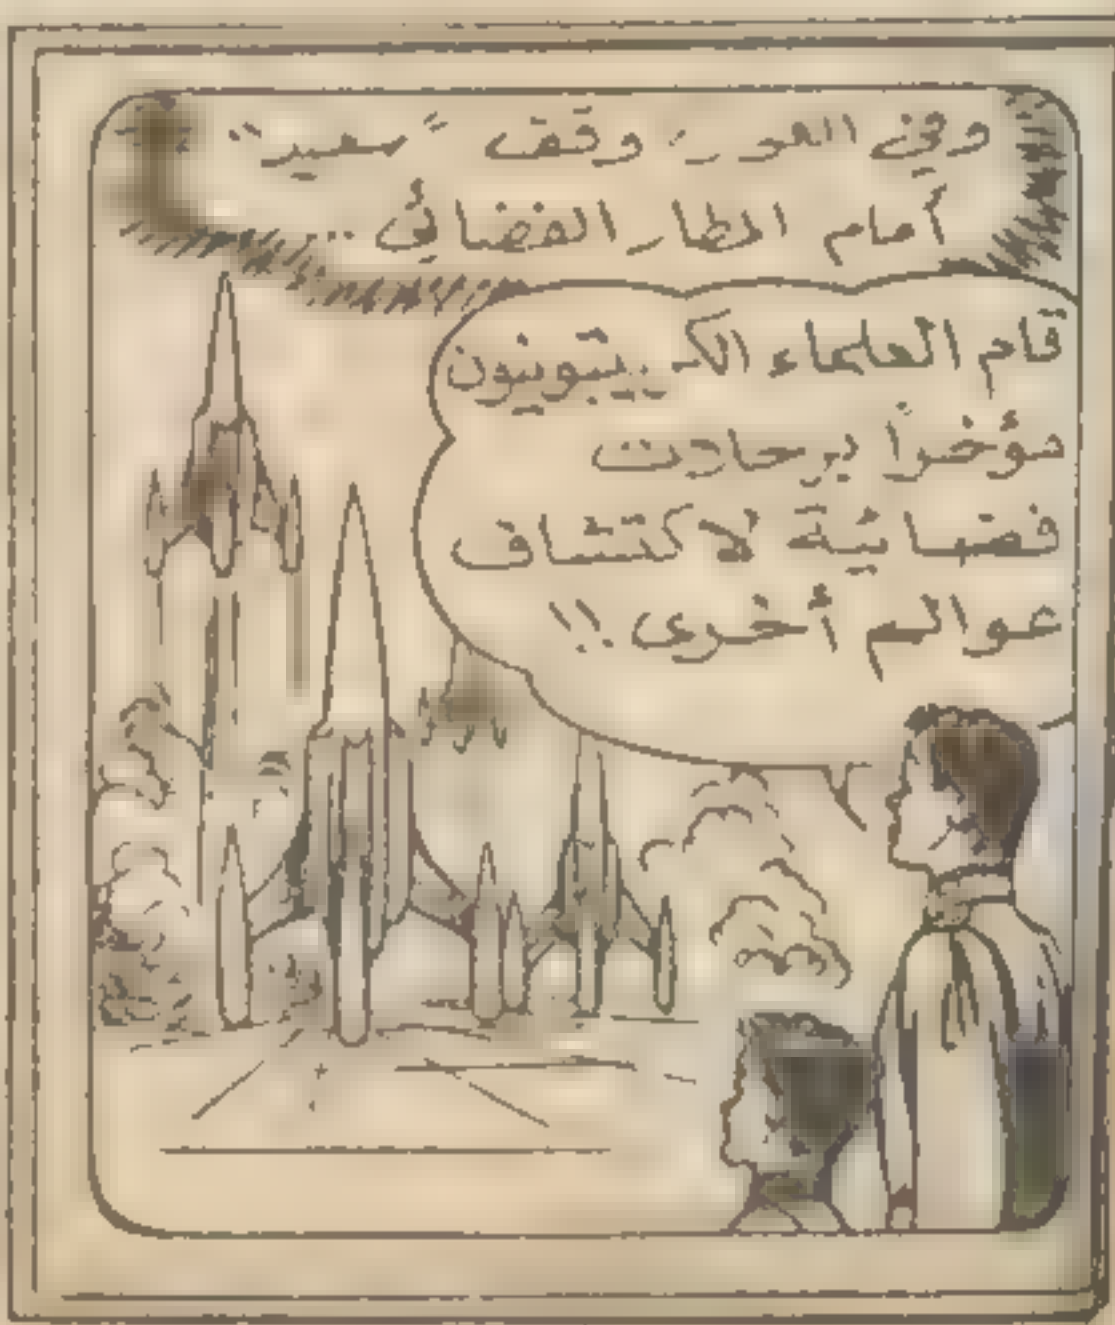 وفي الفور، وقف "سعيد"
أمام المطار الفضائي ...
قام العلماء الكريبتونيون
مؤخراً برحلات
فضائية لاكتشاف
عوالم أخرى !!